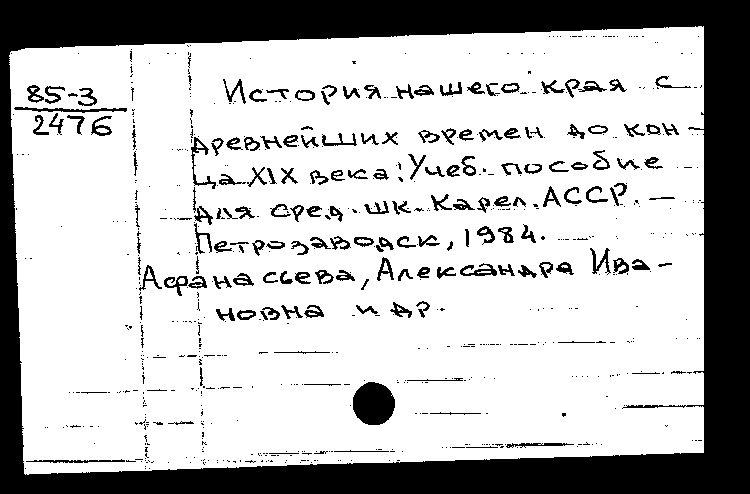 85-3
2476
История нашего края с
древнейших времен до кон-
ца XIX века: Учеб. пособие
для сред. шк. Карел. АССР. —
Петрозаводск, 1984.
Афанасьева, Александра Ива-
новна и др.